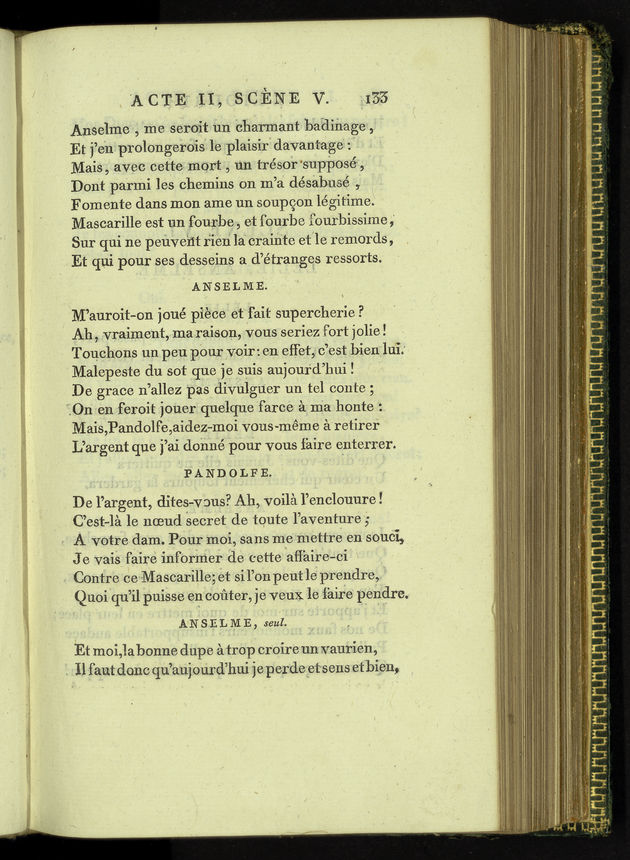 ACTE II, SCÈNE V. 133
Anselme, me seroit un charmant badinage,
Et j'en prolongerois le plaisir davantage :
Mais, avec cette mort, un trésor supposé,
Dont parmi les chemins on m'a désabusé,
Fomente dans mon ame un soupçon légitime.
Mascarille est un fourbe, et fourbe fourbissime,
Sur qui ne peuvent rien la crainte et le remords,
Et qui pour ses desseins a d'étranges ressorts.
ANSELME.
M'auroit-on joué pièce et fait supercherie ?
Ah, vraiment, ma raison, vous seriez fort jolie !
Touchons un peu pour voir : en effet, c'est bien lui.
Malepeste du sot que je suis aujourd'hui !
De grace n'allez pas divulguer un tel conte ;
On en feroit jouer quelque farce à ma honte :
Mais, Pandolfe, aidez-moi vous-même à retirer
L'argent que j'ai donné pour vous faire enterrer.
PANDOLFE.
De l'argent, dites-vous ? Ah, voilà l'enclouure !
C'est-là le nœud secret de toute l'aventure ;
A votre dam. Pour moi, sans me mettre en souci,
Je vais faire informer de cette affaire-ci
Contre ce Mascarille ; et si l'on peut le prendre,
Quoi qu'il puisse en coûter, je veux le faire pendre.
ANSELME, seul.
Et moi, la bonne dupe à trop croire un vaurien,
Il faut donc qu'aujourd'hui je perde et sens et bien,